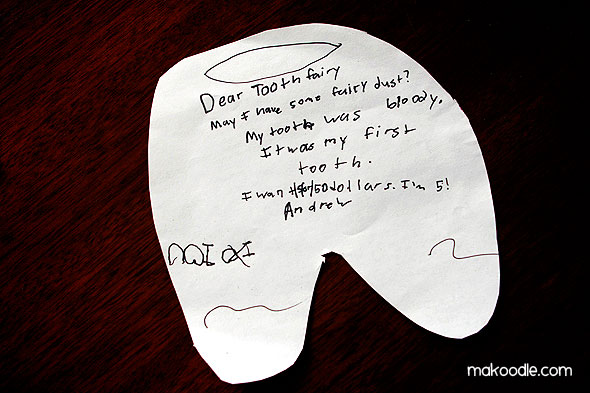 Dear Tooth fairy
May I have some fairy dust?
My tooth was bloody.
It was my first
tooth.
I want dollars. I'm 5!
Andrew
makoodle.com